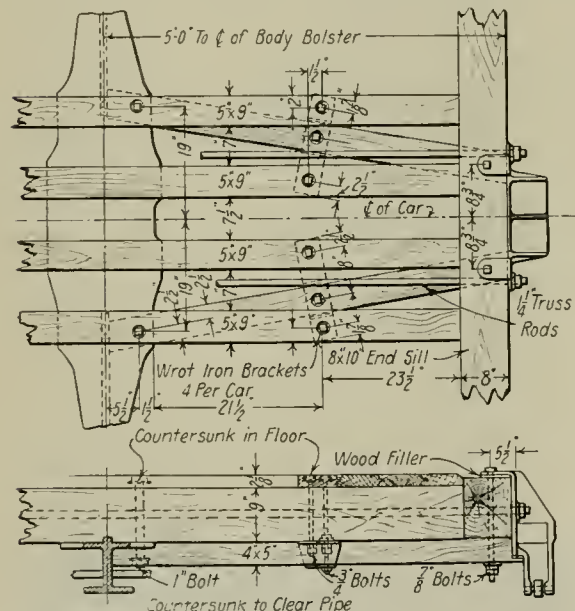 5'-0" To ℄ of Body Bolster
1 1/2"
2"
5"x9"
7"
19"
5"x9"
2 1/2"
℄ of Car
8 3/4"
7 1/2"
5"x9"
8 3/4"
8"
19"
7"
2 1/2"
2 1/2"
5"x9"
1 1/4" Truss
Rods
Wrot Iron Brackets
4 Per Car
8"x10" End Sill
5 1/2"
1 1/2"
21 1/2"
23 1/2"
8"
Countersunk in Floor
Wood Filler
5 1/2"
2 1/8"
9"
4"x5"
1" Bolt
3/4" Bolts
7/8" Bolts
Countersunk to Clear Pipe